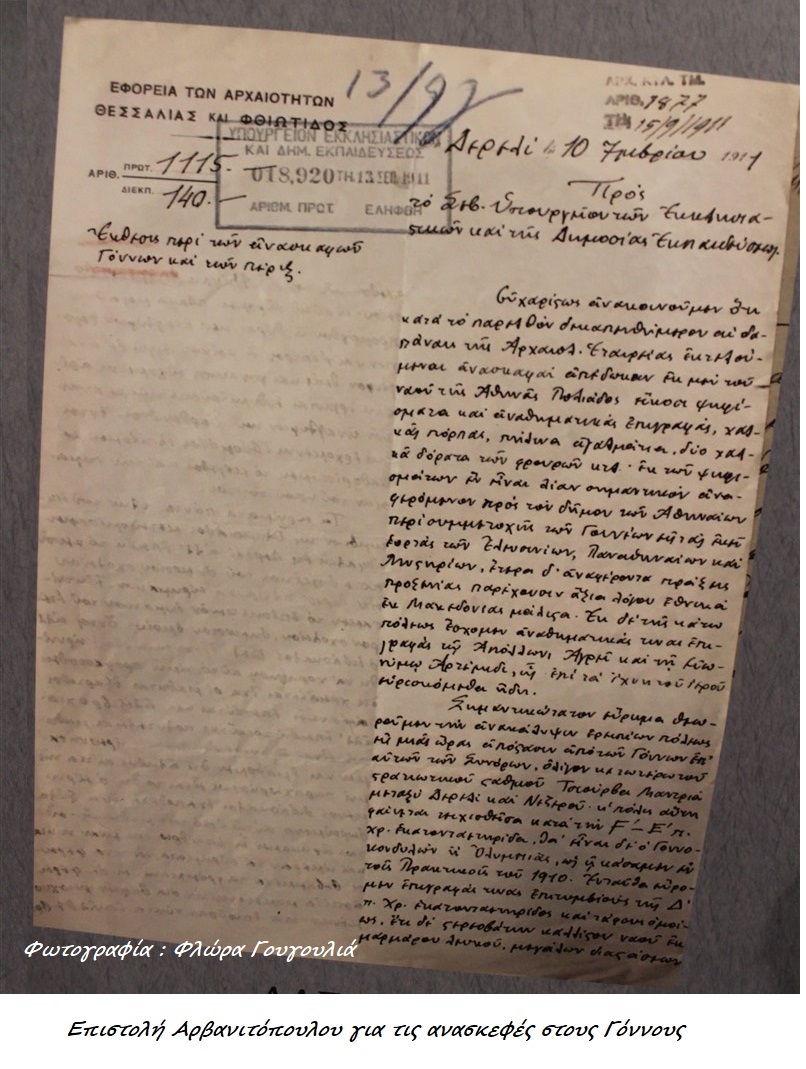 13/92
ΕΦΟΡΕΙΑ ΤΩΝ ΑΡΧΑΙΟΤΗΤΩΝ
ΘΕΣΣΑΛΙΑΣ ΚΑΙ ΦΘΙΩΤΙΔΟΣ
ΑΡΙΘ. 1877
15/9/1911
ΥΠΟΥΡΓΕΙΟΝ ΕΚΚΛΗΣΙΑΣΤΙΚΩΝ
ΚΑΙ ΔΗΜ. ΕΚΠΑΙΔΕΥΣΕΩΣ
018,920 ΤΗ 13 ΣΕΠ 1911
ΑΡΙΘΜ. ΠΡΩΤ ΕΛΗΦΘΗ
ΑΡΙΘ. ΠΡΩΤ. 1115.
ΔΙΕΚΠ. 140.
Δερελί 10 7μβρίου 1911
Πρὸς
τὸ Σεβ. Ὑπουργεῖον τῶν Ἐκκλησια-
στικῶν καὶ τῆς Δημοσίας Ἐκπαιδεύσεως.
Ἔκθεσις περὶ τῶν ἀνασκαφῶν
Γόννων καὶ τῶν πέριξ.
Εὐχαρίστως ἀνακοινοῦμεν ὅτι
κατὰ τὸ παρελθὸν δεκαπενθήμερον αἱ δα-
πάναις τῆς Ἀρχαιολ. Ἑταιρείας ἐκτελού-
μεναι ἀνασκαφαὶ ἀπέδωκαν ἐκ μὲν τοῦ
ναοῦ τῆς Ἀθηνᾶς Πολιάδος εἴκοσι ψηφί-
σματα καὶ ἀναθηματικὰς ἐπιγραφάς, χαλ-
κᾶς πόρπας, πήλινα ἀγαλμάτια, δύο χαλ-
κᾶ δόρατα τῶν φρουρῶν κτλ. ἐκ τῶν ψηφι-
σμάτων ἓν εἶναι λίαν σημαντικὸν ἀνα-
φερόμενον πρὸς τὸν δῆμον τῶν Ἀθηναίων
περὶ συμμετοχῆς τῶν Γοννέων εἰς τὰς ἐκεῖ
ἑορτὰς τῶν Ἐλευσινίων, Παναθηναίων καὶ
Μυστηρίων, ἕτερα δ' ἀναφέροντα πράξεις
προξενίας παρέχουσιν ἄξια λόγου ἐθνικὰ
ἐκ Μακεδονίας μάλιστα. Ἐκ δὲ τῆς κάτω
πόλεως ἔσχομεν ἀναθηματικάς τινας ἐπι-
γραφὰς τῷ Ἀπόλλωνι Ἀγρεῖ καὶ τῇ Εὐω-
νύμῳ Ἀρτέμιδι, ἧς ἐπὶ τὰ ἴχνη τοῦ ἱεροῦ
εὑρισκόμεθα ἤδη.
Σημαντικώτατον εὕρημα θεω-
ροῦμεν τὴν ἀνακάλυψιν ἐρειπίων πόλεως
εἰς μιᾶς ὥρας ἀπόστασιν ἀπὸ τῶν Γόννων ἐπ'
αὐτῶν τῶν συνόρων, ὀλίγον κατωτέρω τοῦ
στρατιωτικοῦ σταθμοῦ Τσιούρβα Μαντριά
μεταξὺ Δερελὶ καὶ Νεζεροῦ. ἡ πόλις αὕτη
φαίνεται τειχισθεῖσα κατὰ τὴν Ϝ'–Ε' π.
Χρ. ἑκατονταετηρίδα, θὰ εἶναι δὲ ὁ Γοννο-
κόνδυλος ἢ Ὀλυμπιάς, ὡς εἰκάσαμεν ἐν
τοῖς Πρακτικοῖς τοῦ 1910. Ἐνταῦθα εὕρο-
μεν ἐπιγραφάς τινας ἐπιτυμβίους τῆς Δ'
π. Χρ. ἑκατονταετηρίδος καὶ τάφους ὁμοί-
ως, ἔτι δὲ στερεοβάτην καλλίστου ναοῦ ἐκ
μαρμάρου λευκοῦ, μεγάλων διαστάσεων
Φωτογραφία : Φλώρα Γουγουλιά
Επιστολή Αρβανιτόπουλου για τις ανασκεφές στους Γόννους